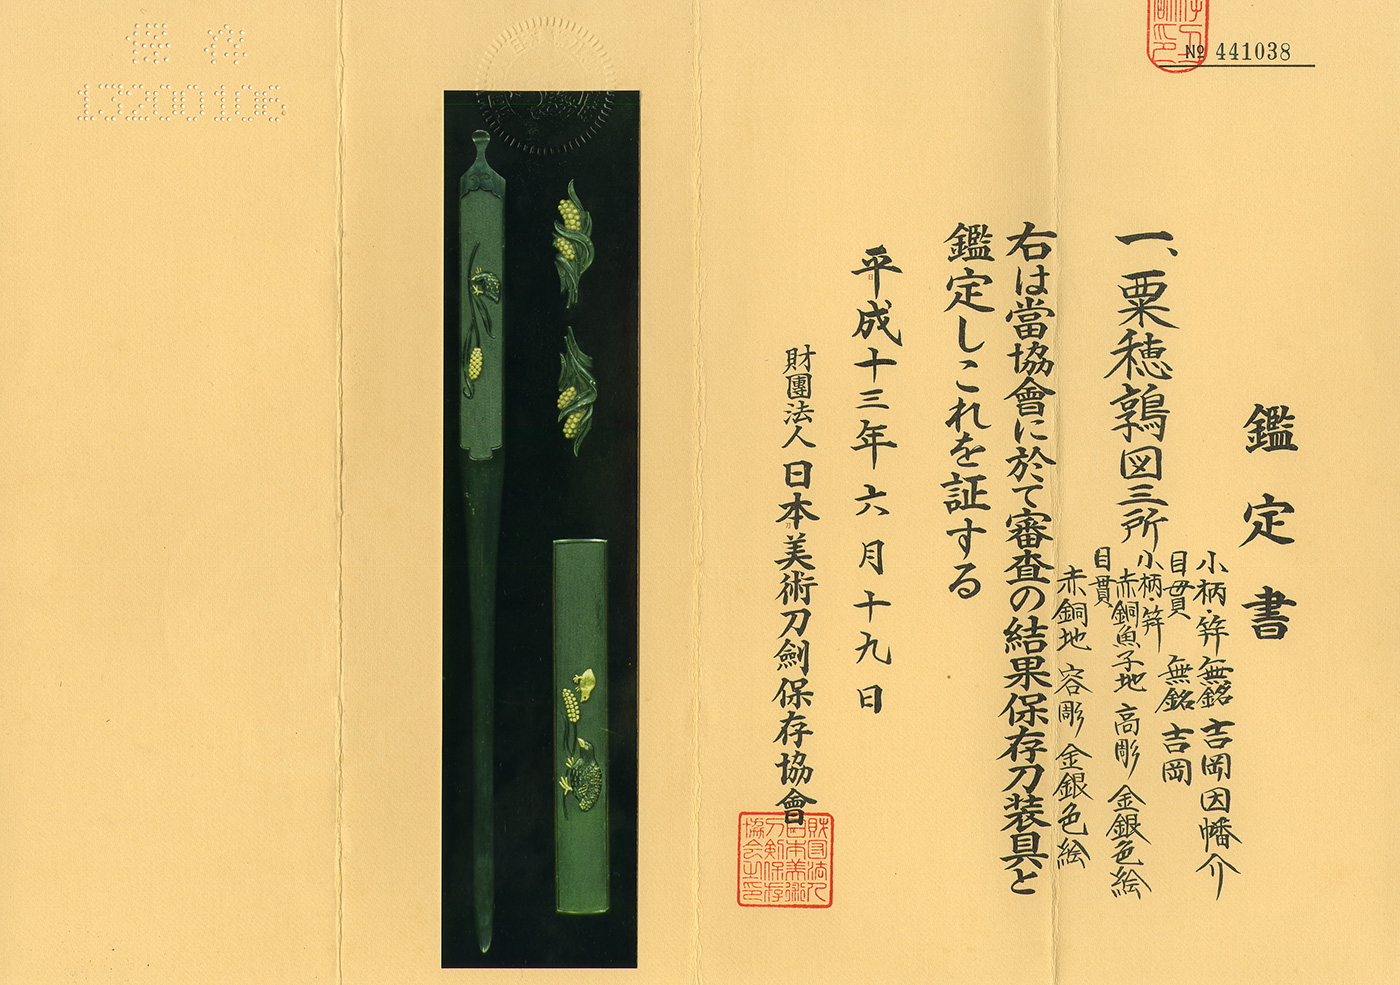 保存
13200106
№ 441038
鑑定書
一、粟穂鶉図三所
小柄・笄 無銘 吉岡因幡介
目貫 無銘 吉岡
小柄・笄
赤銅魚子地 高彫 金銀色絵
目貫
赤銅地 容彫 金銀色絵
右は當協會に於て審査の結果保存刀装具と
鑑定しこれを証する
平成十三年六月十九日
財團法人 日本美術刀劍保存協會